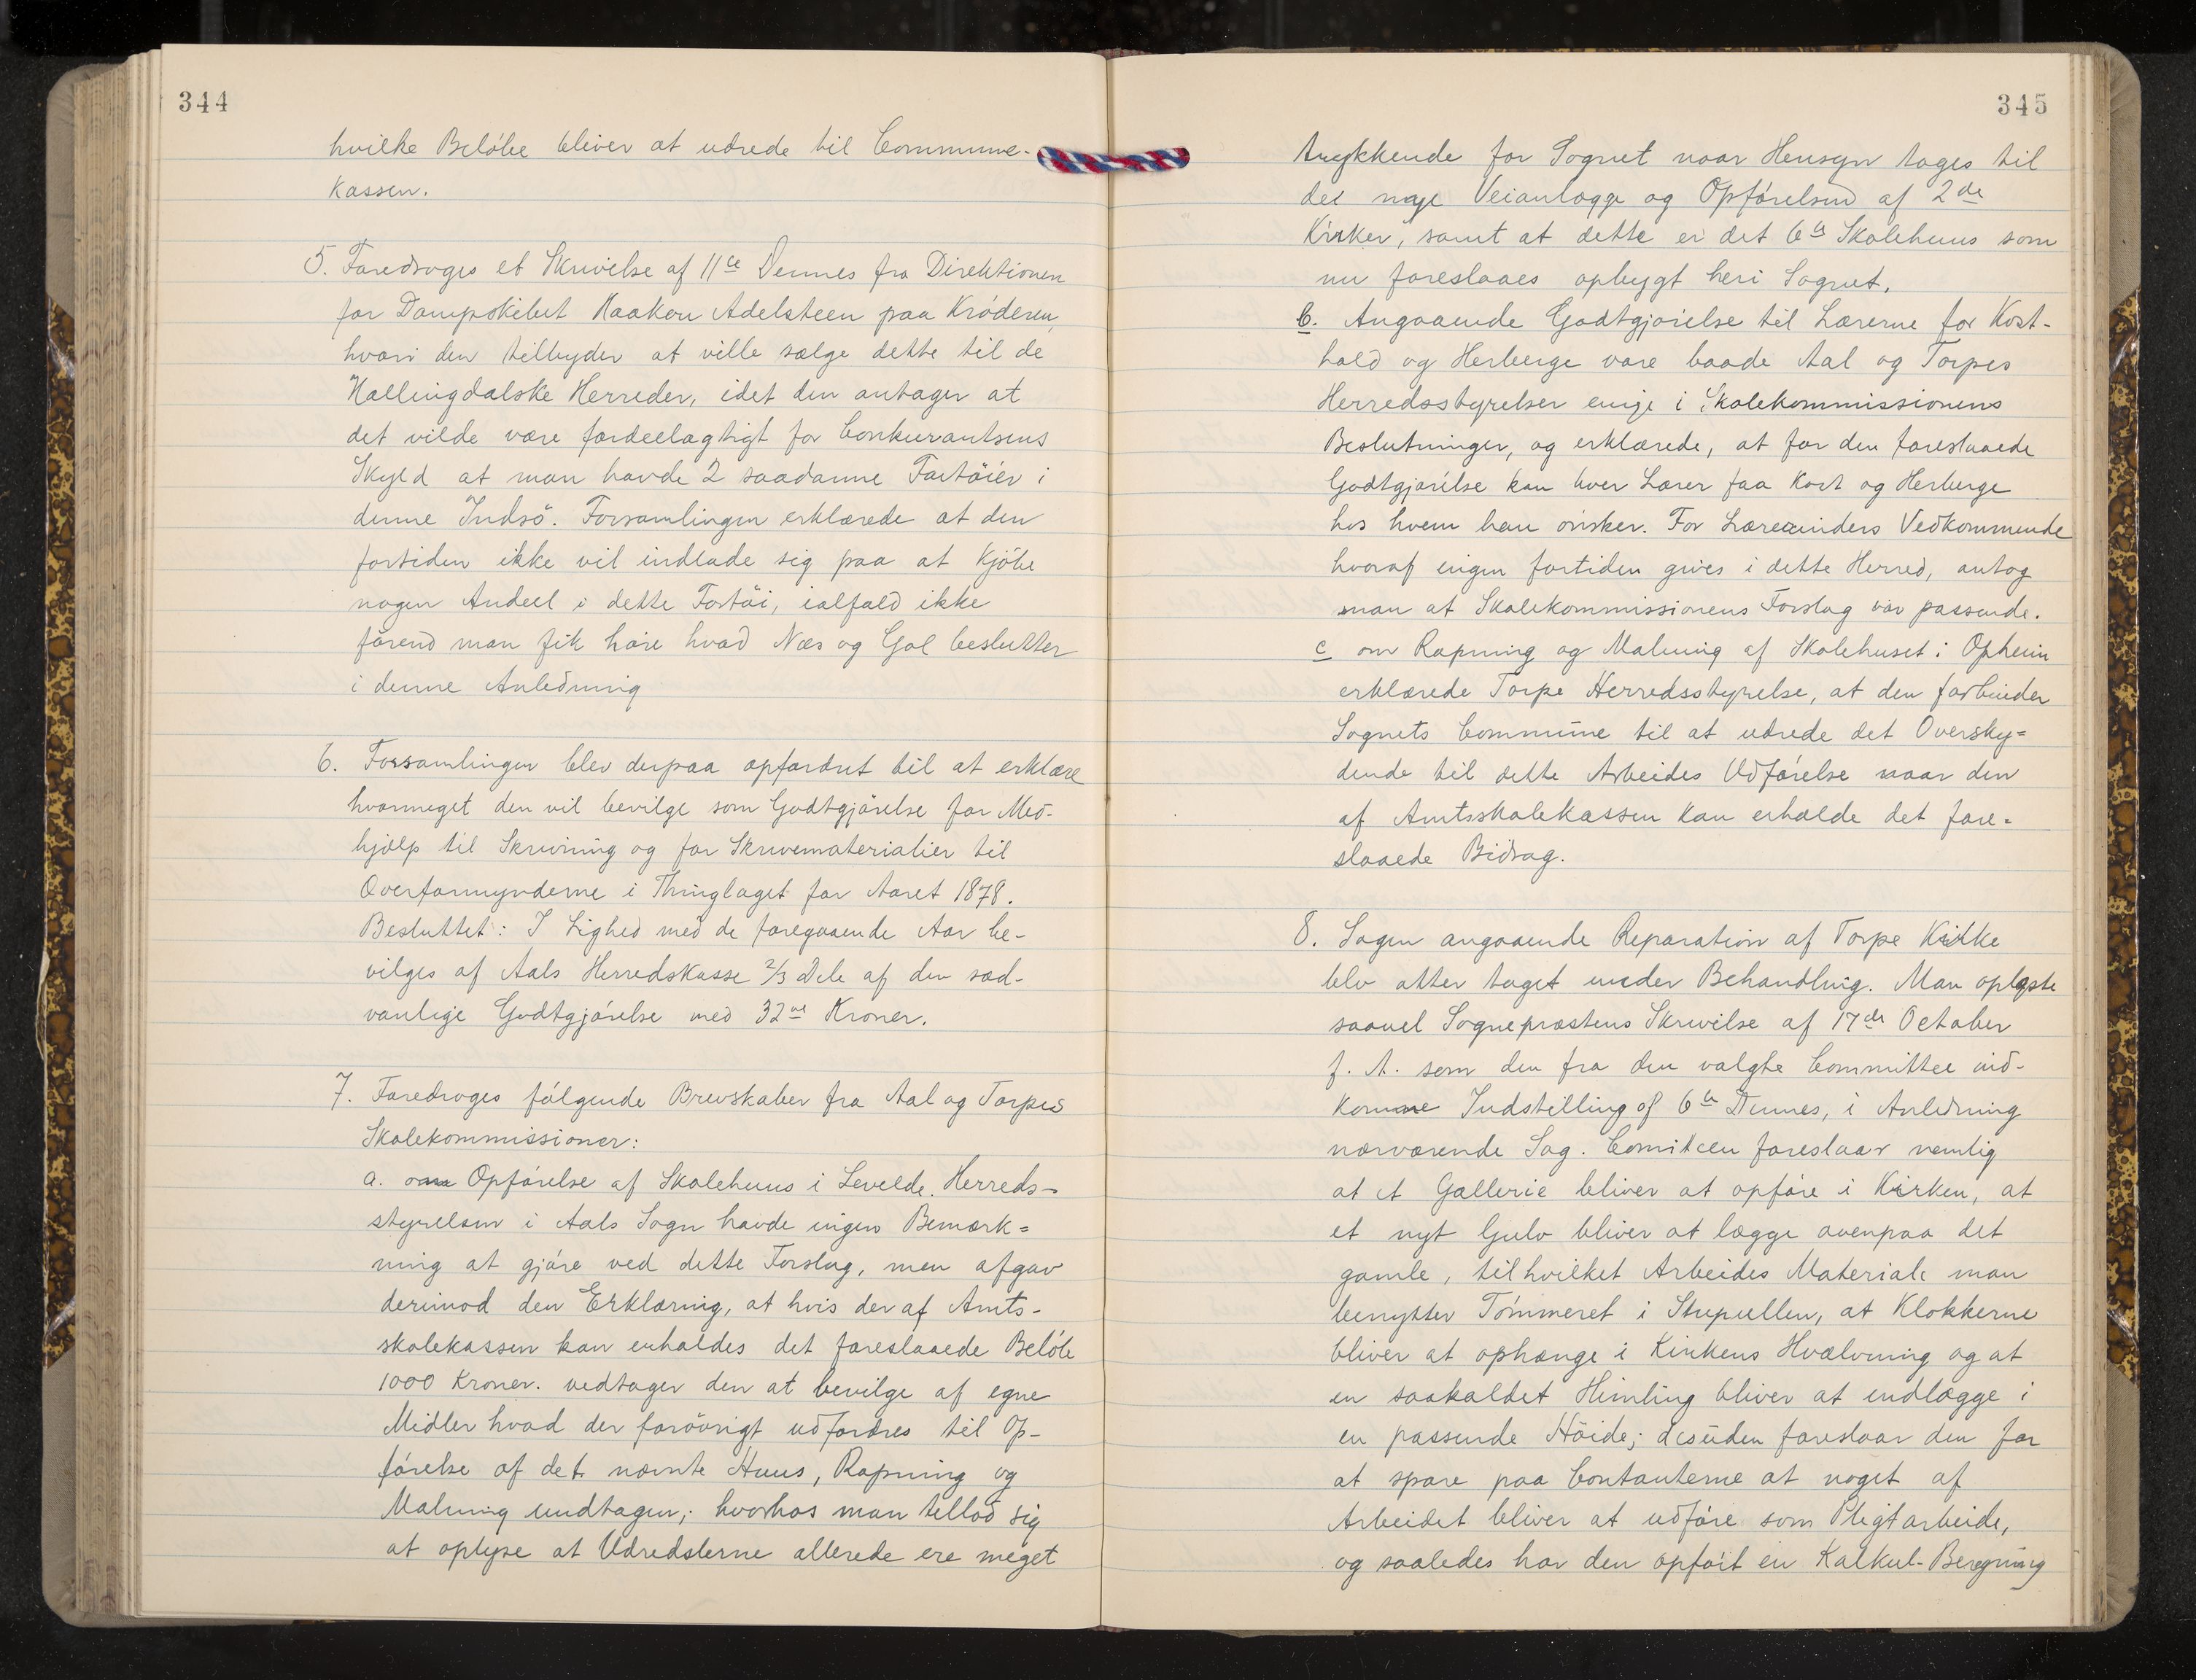 344
hvilke Beløbe bliver at udrede til Commune-
kassen.
5. Foredroges et Skrivelse af 11te Dennes fra Direktionen
for Dampskibet Haakon Adelsteen paa Krøderen,
hvori den tilbyder at ville sælge dette til de
Hallingdalske Herreder, idet den antager at
det vilde være fordeelagtigt for Conkurantsens
Skyld at man havde 2 saadanne Fartøier i
denne Indsø. Forsamlingen erklærede at den
fortiden ikke vil indlade sig paa at Kjøbe
nogen Andeel i dette Fartøi, ialfald ikke
førend man fik høre hvad Næs og Gol beslutter
i denne Anledning
6. Forsamlingen blev derpaa opfordret til at erklære
hvormeget den vil bevilge som Godtgjørelse for Med-
hjælp til Skrivning og for Skrivematerialier til
Overformynderne i Thinglaget for Aaret 1878.
Besluttet: I Lighed med de foregaaende Aar be-
vilges af Aals Herredskasse 2/3 Dele af den sæd-
vanlige Godtgjørelse med 32 Kroner.
7. Foredroges følgende Brevskaber fra Aal og Torpes
Skolekommissioner:
a. om Opførelse af Skolehuus i Levelde. Herreds-
styrelsen i Aals Sogn havde ingen Bemærk=
ning at gjøre ved dette Forslag, men afgav
derimod den Erklæring, at hvis der af Amts-
skolekassen kan erholdes det foreslaaede Beløb
1000 Kroner. vedtager den at bevilge af egne
Midler hvad der forøvrigt udfordres til Op-
førelse af det nævnte Huus, Rapning og
Malning undtagen; hvorhos man tillod sig
at oplyse at Udredslerne allerede ere meget
345
trykkende for Sognet naar Hensyn tages til
det nye Veianlægge og Opførelsend af 2de
Kirker, samt at dette er det 6te Skolehuus som
nu foreslaaes opbygt heri Sognet.
b. Angaaende Godtgjørelse til Lærerne for Kost-
hold og Herberge vare baade Aal og Torpes
Herredsstyrelser enige i Skolekommissionens
Beslutninger, og erklærede, at for den foreslaaede
Godtgjørelse kan hver Lærer faa Kost og Herberge
hos hvem han ønsker. For Lærerinders Vedkommende
hvoraf ingen fortiden gives i dette Herred, antog
man at Skolekommissionens Forslag var passende.
c om Rapning og Malning af Skolehuset i Opheim
erklærede Torpe Herredsstyrelse, at den forbinder
Sognets Commune til at udrede det Oversky=
dende til dette Arbeides Udførelse naar den
af Amtsskolekassen kan erholde det fore-
slaaede Bidrag.
8. Sagen angaaende Reparation af Torpe Kirke
blev atter taget under Behandling. Man oplæste
saavel Sognepræstens Skrivelse af 17de October
f. A. som den fra den valgte Committee ind-
komne Indstilling af 6te Dennes, i Anledning
nærværende Sag. Comiteen foreslaar nemlig
at et Gallerie bliver at opføre i Kirken, at
et nyt Gulv bliver at lægge ovenpaa det
gamle, til hvilket Arbeides Materiale man
benytter Tømmeret i Stupullen, at Klokkerne
bliver at ophænge i Kirkens Hvælvning og at
en saakaldet Himling bliver at indlægge i
en passende Høide; desuden foreslaar den for
at spare paa Contanterne at noget af
Arbeidet bliver at udføre som Pligtarbeide,
og saaledes har den opført en Kalkul-Beregning